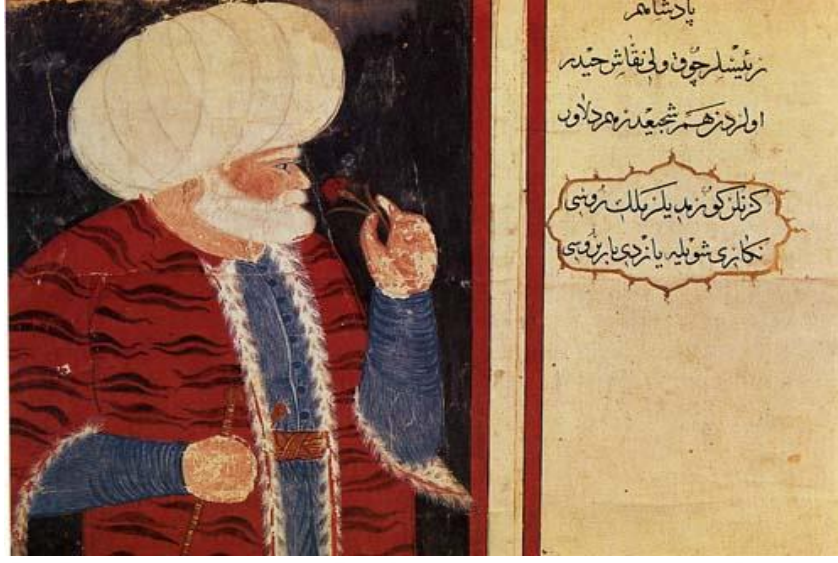 پادشاهم
رئیسلر چوق ولی نقاش حیدر
اولردر هم شجیعدر هم دلاور
کزنلر کورمدیلر ملك روسی
نکاری شویله یازدی باربروسی